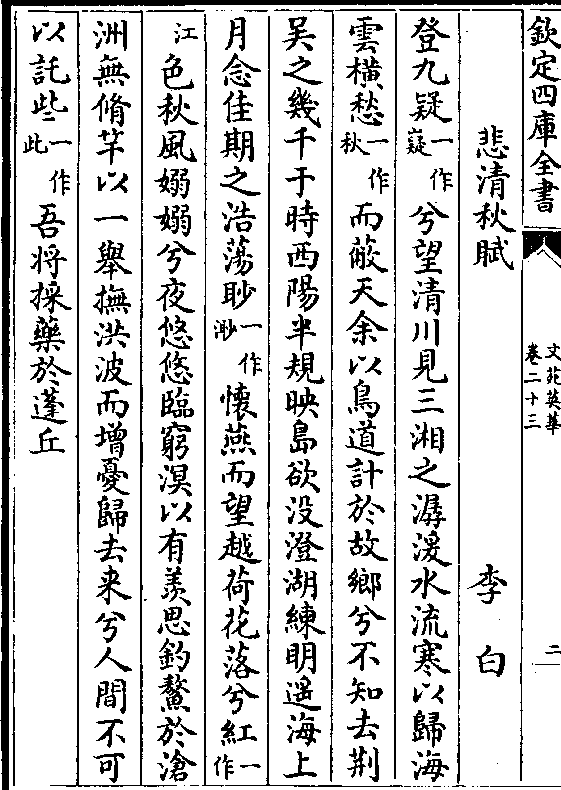 欽定四庫全書
文苑英華
卷二十三
二
悲清秋賦 李白
登九疑一作嶷兮望清川見三湘之潺湲水流寒以歸海
雲橫愁一作秋而蔽天余以鳥道計於故鄉兮不知去荆
吴之幾千于時西陽半規映島欲没澄湖練明遥海上
月念佳期之浩蕩眇一作渺懷燕而望越荷花落兮紅一作
江色秋風嫋嫋兮夜悠悠臨窮溟以有羨思釣鰲於滄
洲無脩竿以一舉撫洪波而增憂歸去来兮人間不可
以託些一作此吾将採藥於蓬丘